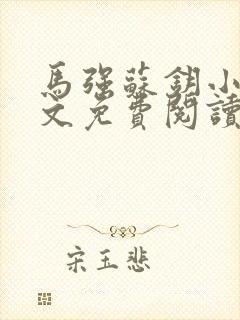 馬強蘇鈅小
文免費閱讀
宋玉悲